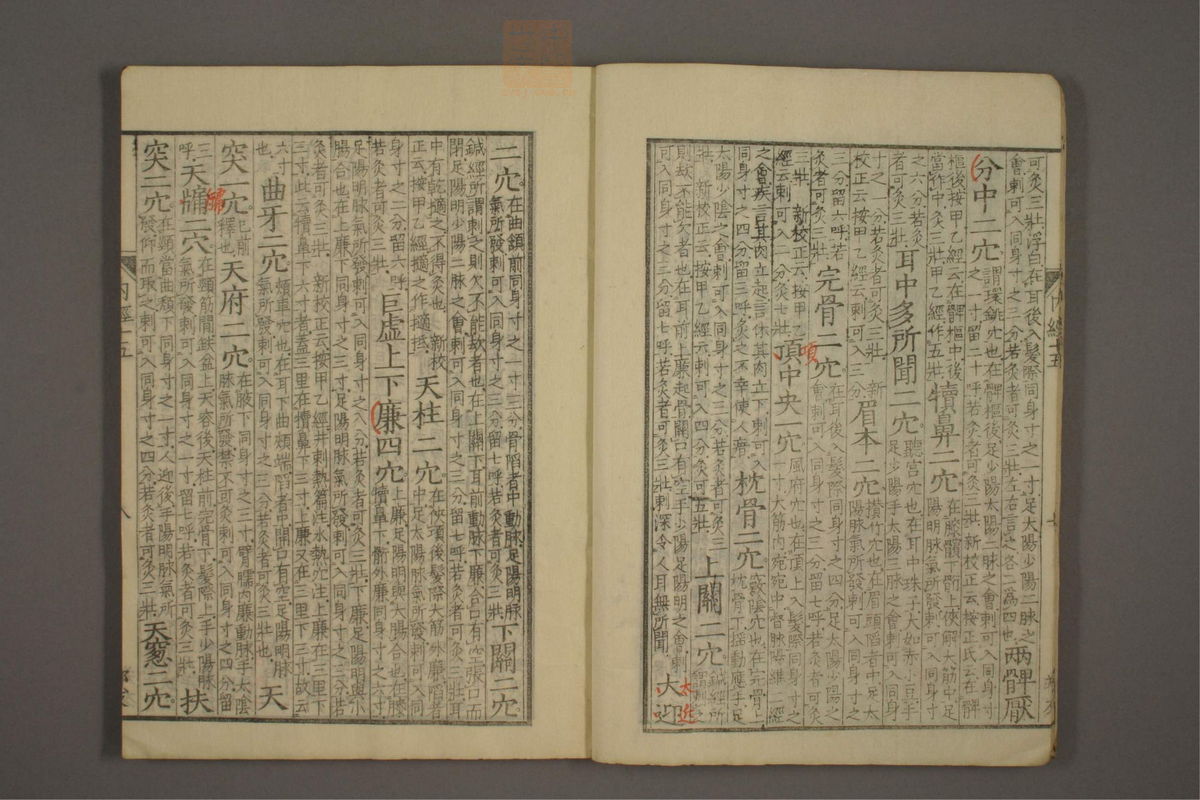 可灸三壯浮白在耳後入髮際同身寸之一寸足太陽少陽二脉之
會刺可入同身寸之三分若灸者可灸三壯左右言之各二為四也
兩髀厭
分中二穴
謂環銚穴也在髀樞後足少陽太陽二脉之會刺可入同身寸
之一寸留二十呼若灸者可灸三壯新校正云按王氏云在髀
樞後按甲乙經云在髀樞中後
當作中灸三壯甲乙經作五壯
犢鼻二穴
在膝髕下䯒上俠解大筋中足
陽明脉氣所發刺可入同身寸
之六分若灸
者可灸三壯
耳中多所聞二穴
聽宮穴也在耳中珠子大如赤小豆手
足少陽手太陽三脉之會刺可入同身
寸之一分若灸者可灸三壯 新
校正云按甲乙經云刺可入三分
眉本二穴
攢竹穴也在眉頭䧟者中足太
陽脉氣所發刺可入同身寸之
三分留六呼若
灸者可灸三壯
完骨二穴
在耳後入髮際同身寸之四分足太陽少陽之
會刺可入同身寸之三分留七呼若灸者可灸
三壯 新校正云按甲乙
經云刺可入二分灸七壯
頂中央一穴
項
風府穴也在頂上入髮際同身寸之
一寸大筋内宛宛中督脉陽維二經
之會疾言其肉立起言休其肉立下刺可入
同身寸之四分留三呼灸之不幸使人瘖
枕骨二穴
竅陰穴也在完骨上
枕骨下搖動應手足
太陽少陰之會刺可入同身寸之三分若灸者可灸三
壯 新校正云按甲乙經云刺可入四分灸可五壯
上關二穴
鍼經所
謂刺之
則㰦不能欠者也在耳前上廉起骨開口有空手少陽足陽明之會刺
可入同身寸之三分留七呼若灸者可灸三壯刺深令人耳無所聞
大迎
内經十五
二穴
在曲頷前同身寸之一寸三分骨䧟者中動脉足陽明脉
氣所發刺可入同身寸之三分留七呼若灸者可灸三壯
下關二穴
鍼經所謂刺之則欠不能㰦者也在上關下耳前動脉下廉合口有空張口而
閉足陽明少陽二脉之會刺可入同身寸之三分留七呼若灸者可灸三壯耳
中有乾擿之不得灸也 新校
正云按甲乙經擿之作擿抵
天柱二穴
在俠項後髮際大筋外廉䧟者
中足太陽脉氣所發刺可入同
身寸之二分留六呼
若灸者可灸三壯
巨虚上下廉四穴
上廉足陽明與大腸合也在膝
犢鼻下䯒外廉同身寸之六寸
足陽明脉氣所發刺可入同身寸之八分若灸者可灸三壯下廉足陽明與小
腸合也在上廉下同身寸之三寸足陽明脉氣所發刺可入同身寸之三分若
灸者可灸三壯 新校正云按甲乙經并刺熱篇注水熱穴注上廉在三里下
三寸此云犢鼻下六寸者蓋三里在犢鼻下三寸上廉又在三里下三寸故云
六寸
也
曲牙二穴
頰車穴也在耳下曲頰端䧟者中開口有空足陽明脉
氣所發刺可入同身寸之三分若灸者可灸三壯也
天
突一穴
已前
釋也
天府二穴
在腋下同身寸之三寸臂臑内廉動脉手太陰
脉氣所發禁不可灸刺可入同身寸之四分留
三
呼
天牖二穴
在頸筋間缺盆上天容後天柱前完骨下髮際上手少陽脉
氣所發刺可入同身寸之一寸留七呼若灸者可灸三壯
扶
突二穴
在頸當曲頰下同身寸之一寸人迎後手陽明脉氣所
發仰而取之刺可入同身寸之四分若灸者可灸三壯
天窻二穴
内經十五
八